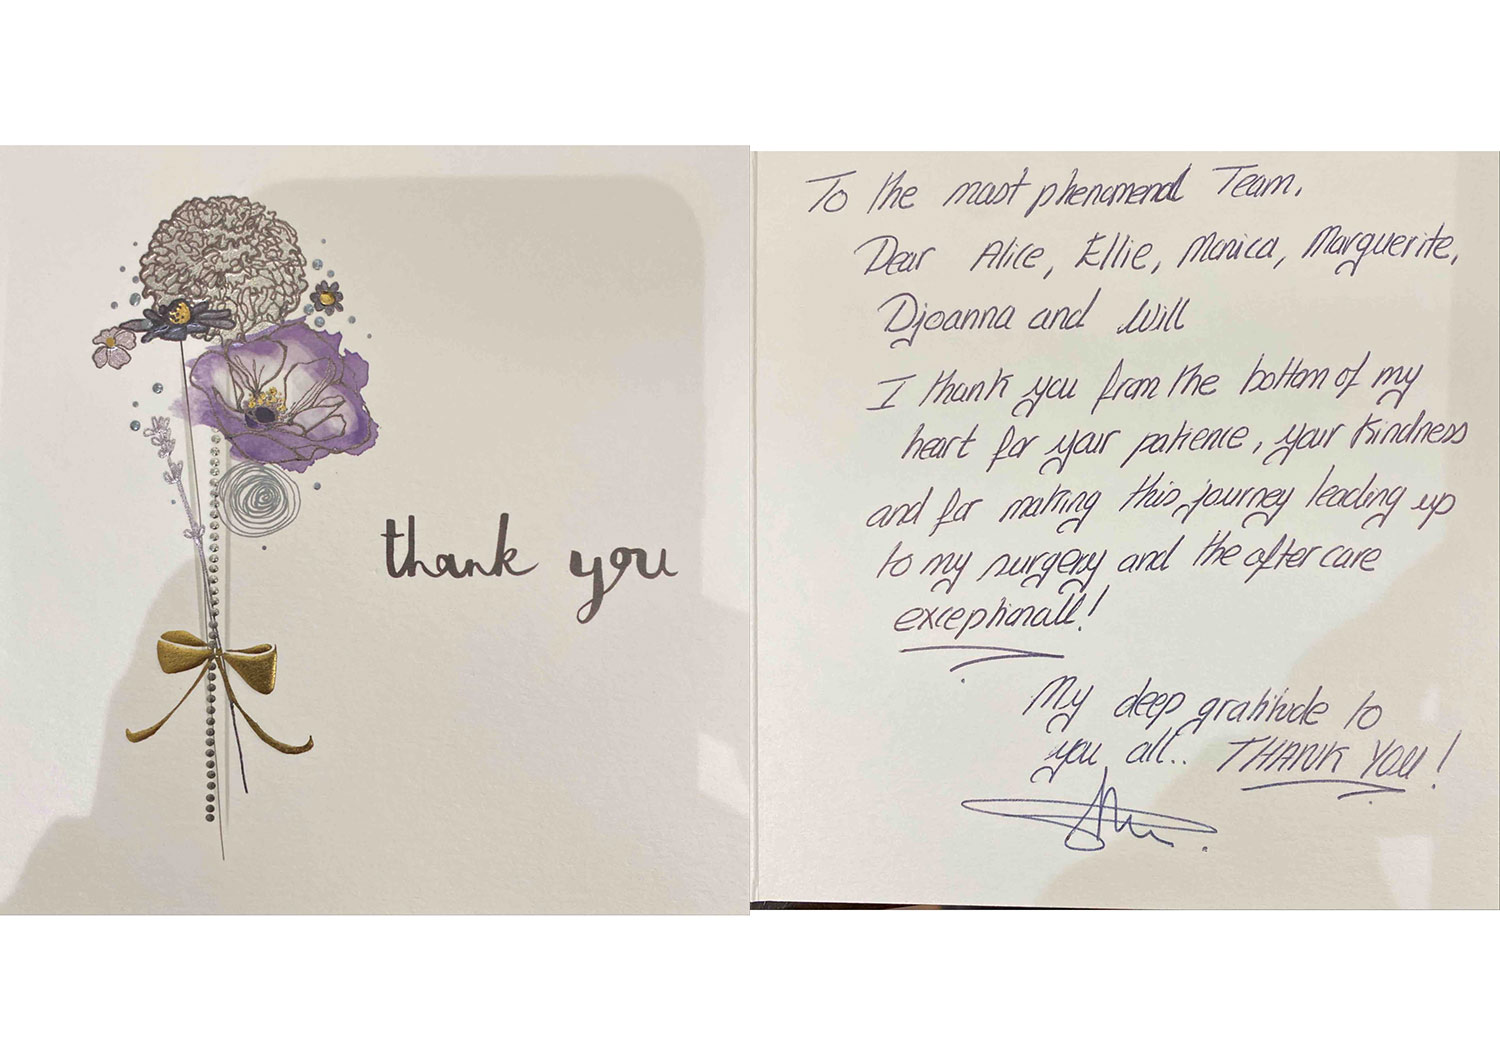 thank you
To the most phenomenal Team,
Dear Alice, Ellie, Monica, Marguerite,
Djoanna and Will
I thank you from the bottom of my
heart for your patience, your kindness
and for making this journey leading up
to my surgery and the after care
exceptionall!
My deep gratitude to
you all.. THANK YOU!